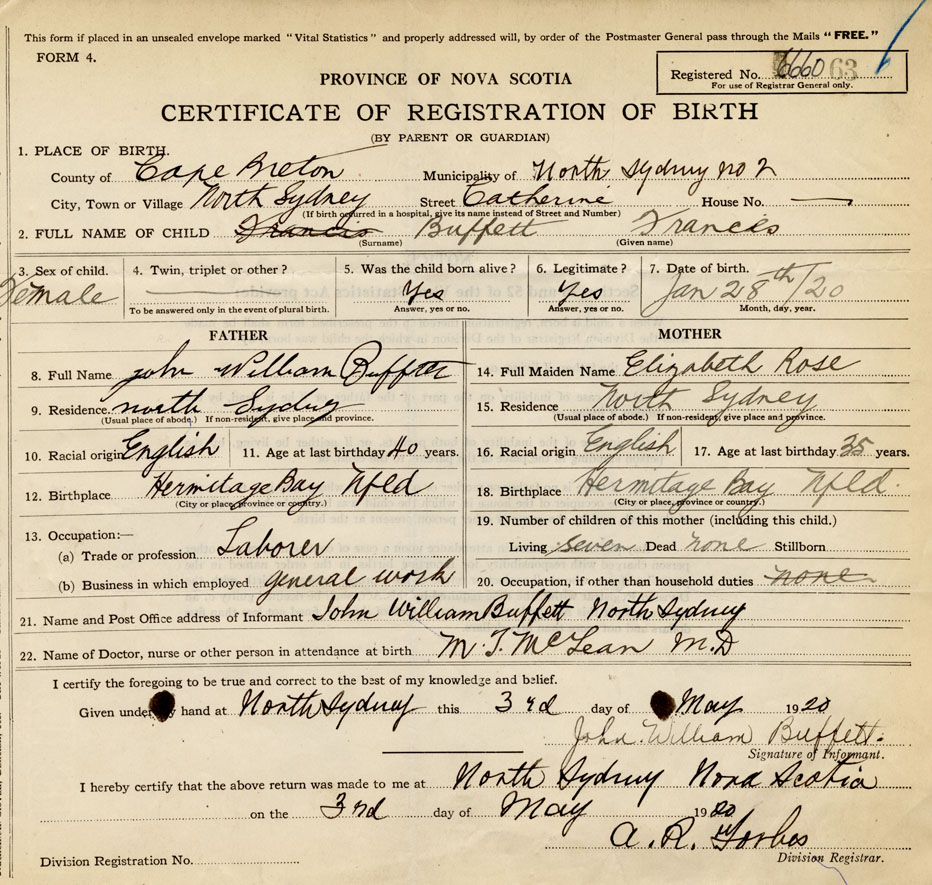 This form if placed in an unsealed envelope marked "Vital Statistics" and properly addressed will, by order of the Postmaster General pass through the Mails "FREE."
FORM 4.
Registered No. 6660 63
For use of Registrar General only.
PROVINCE OF NOVA SCOTIA
CERTIFICATE OF REGISTRATION OF BIRTH
(BY PARENT OR GUARDIAN)
1. PLACE OF BIRTH.
County of Cape Breton Municipality of North Sydney no 2
City, Town or Village North Sydney Street Catherine House No. —
(If birth occurred in a hospital, give its name instead of Street and Number)
2. FULL NAME OF CHILD Francis Buffett Francis
(Surname) (Given name)
3. Sex of child. 4. Twin, triplet or other? 5. Was the child born alive? 6. Legitimate? 7. Date of birth.
Female — Yes Yes Jan 28th/20
To be answered only in the event of plural birth. Answer, yes or no. Answer, yes or no. Month, day, year.
FATHER MOTHER
8. Full Name John William Buffett 14. Full Maiden Name Elizabeth Rose
9. Residence. North Sydney 15. Residence North Sydney
(Usual place of abode.) If non-resident, give place and province. (Usual place of abode.) If non-resident, give place and province.
10. Racial origin English 11. Age at last birthday 40 years. 16. Racial origin English 17. Age at last birthday 35 years.
12. Birthplace Hermitage Bay Nfld 18. Birthplace Hermitage Bay Nfld
(City or place, province or country.) (City or place, province or country.)
13. Occupation:— 19. Number of children of this mother (including this child.)
(a) Trade or profession Laborer Living seven Dead none Stillborn
(b) Business in which employed general work 20. Occupation, if other than household duties none
21. Name and Post Office address of Informant John William Buffett North Sydney
22. Name of Doctor, nurse or other person in attendance at birth M. T. McLean M.D
I certify the foregoing to be true and correct to the best of my knowledge and belief.
Given under my hand at North Sydney this 3rd day of May 1920
John William Buffett.
Signature of Informant.
I hereby certify that the above return was made to me at North Sydney Nova Scotia
on the 3rd day of May 1920
A. R. Forbes
Division Registration No. Division Registrar.